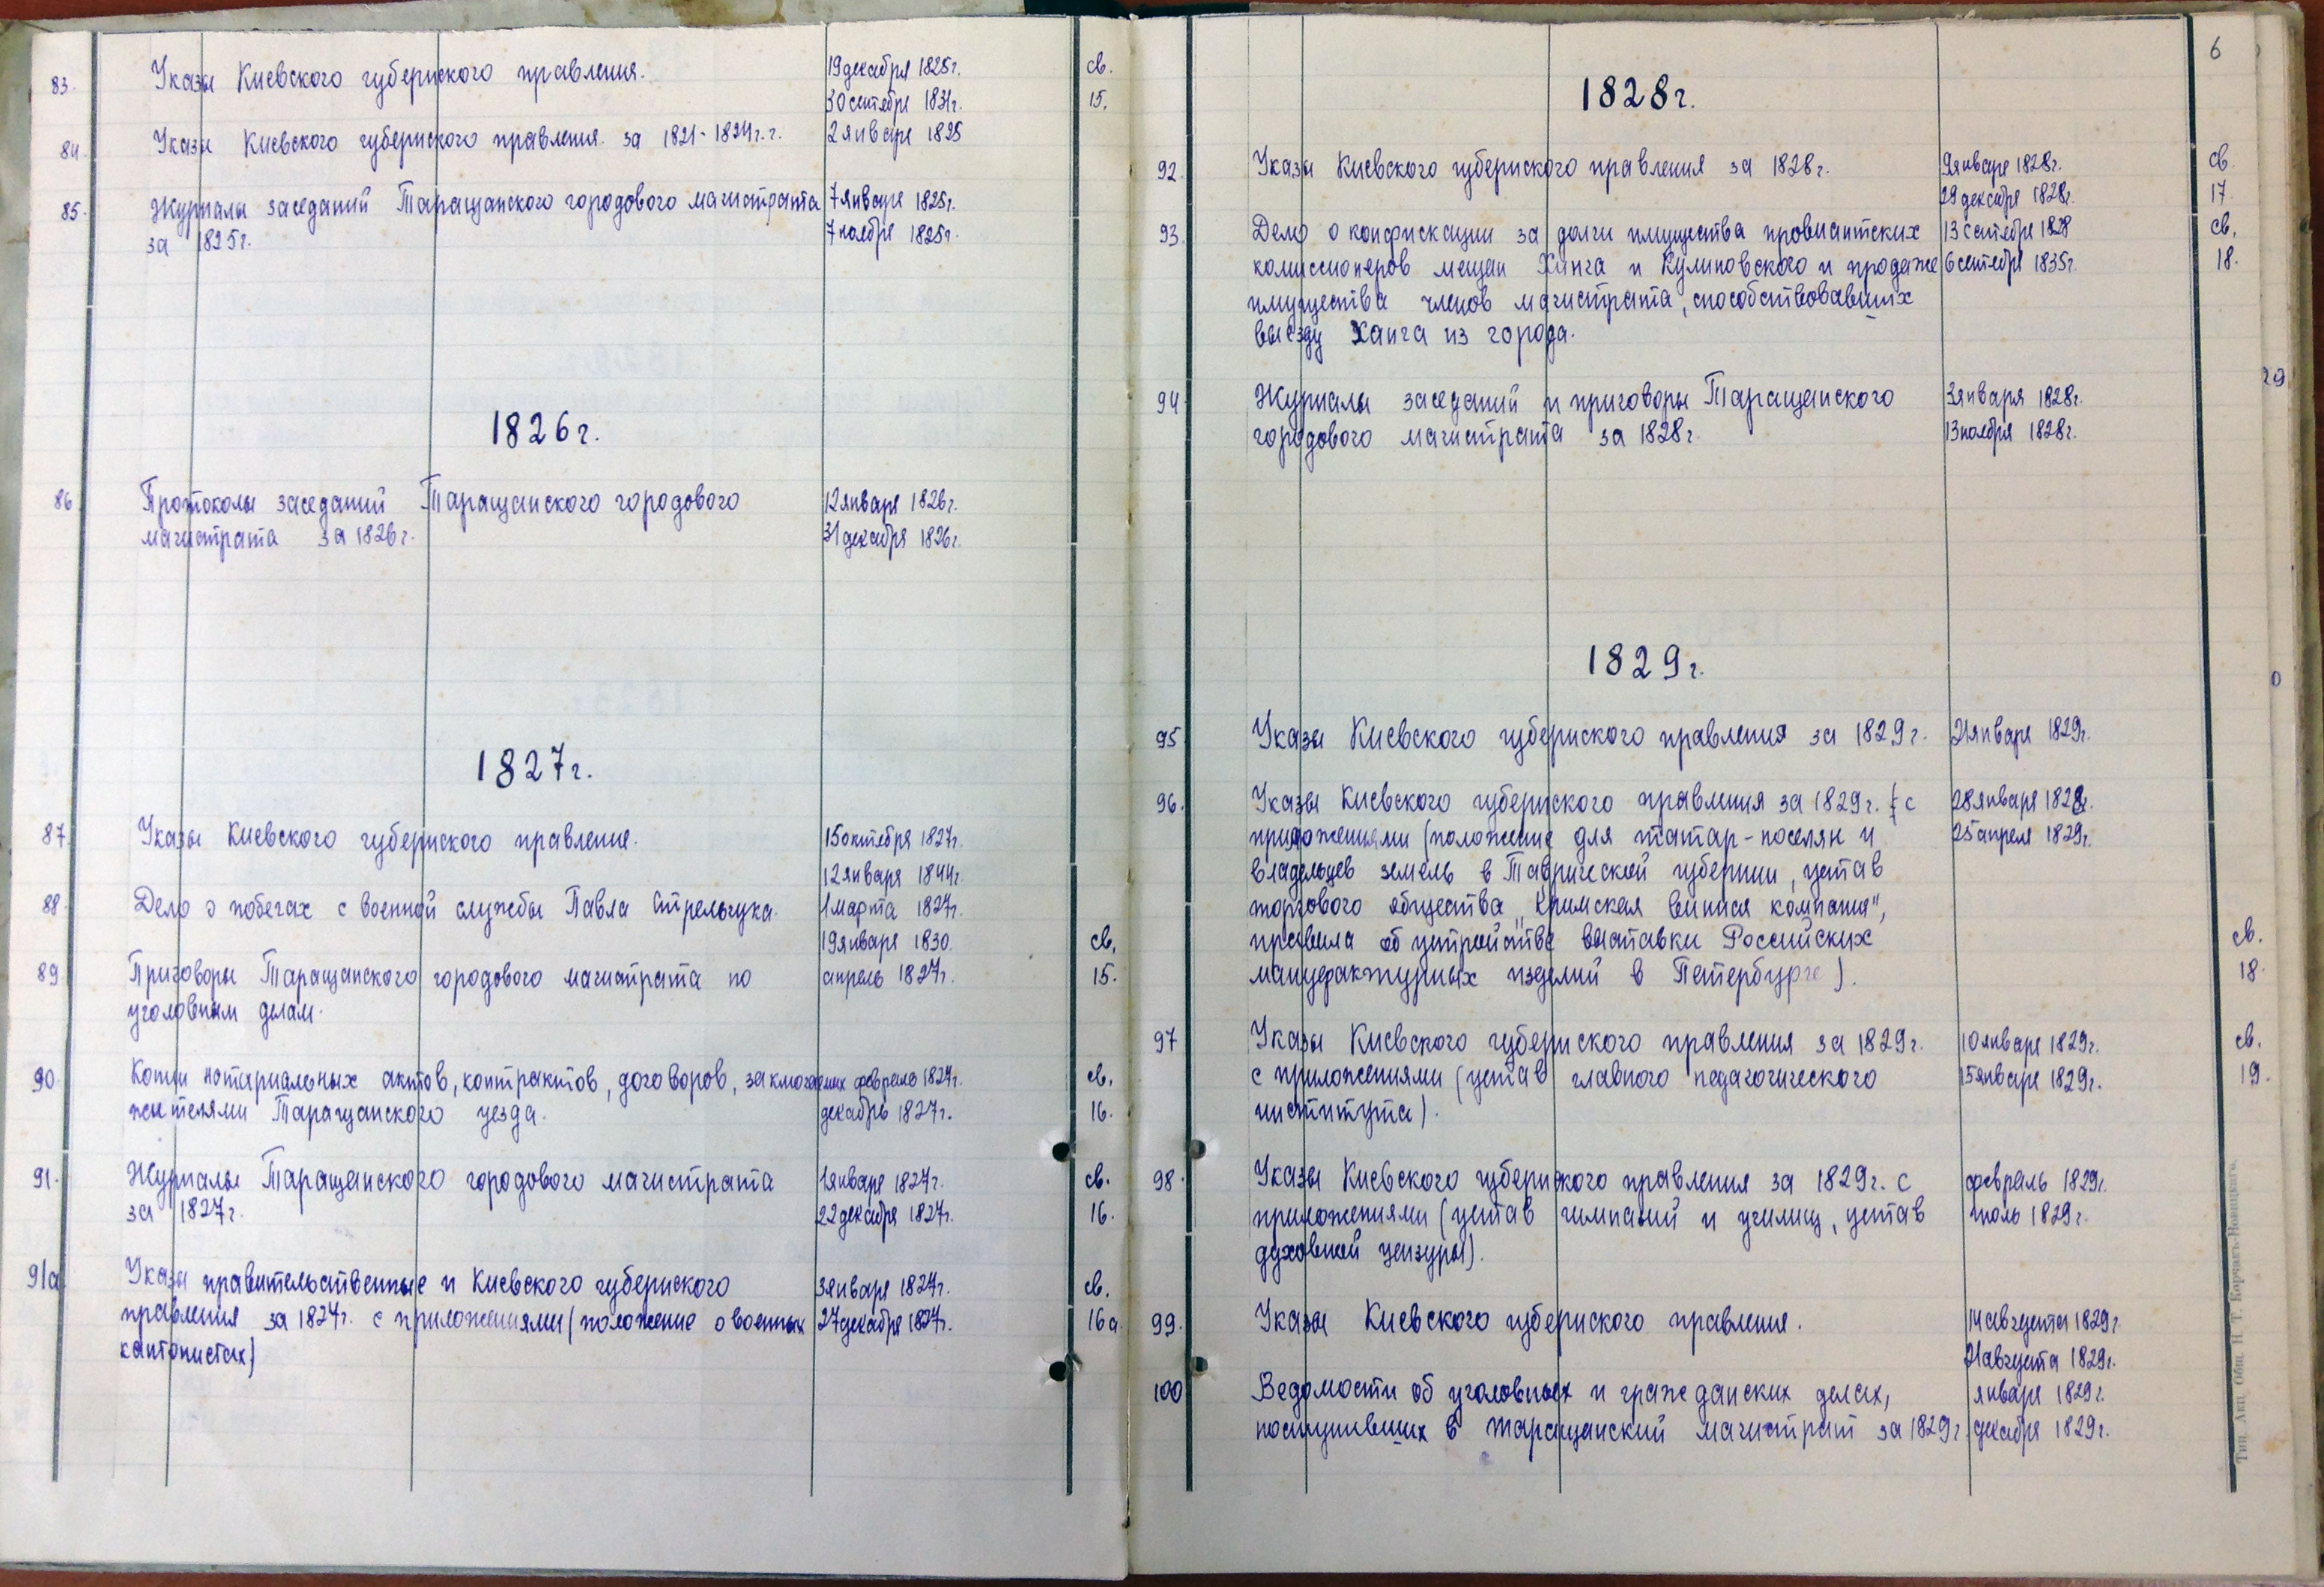 83. Указы Киевского губернского правления. 19 декабря 1825г. св.
30 сентября 1831г. 15.
84. Указы Киевского губернского правления. за 1821-1824г.г. 2 января 1825
85. Журналы заседаний Таращанского городового магистрата 7 января 1825г.
за 1825г. 7 ноября 1825г.
1826г.
86 Протоколы заседаний Таращанского городового 12 января 1826г.
магистрата за 1826г. 31 декабря 1826г.
1827г.
87. Указы Киевского губернского правления. 15 октября 1827г.
12 января 1844г.
88 Дело о побегах с военной службы Павла Стрельчука. 1 марта 1827г.
19 января 1830. св.
89 Приговоры Таращанского городового магистрата по апрель 1827г. 15.
уголовным делам.
90. Копии нотариальных актов, контрактов, договоров, заключенных февраль 1827г. св.
жителями Таращанского уезда. декабрь 1827г. 16.
91. Журналы Таращанского городового магистрата 1 января 1827г. св.
за 1827г. 22 декабря 1827г. 16.
91а Указы правительственные и Киевского губернского 3 января 1827г. св.
правления за 1827г. с приложениями (положение о военных 27 декабря 1827г. 16а
кантонистах)
6
1828г.
92 Указы Киевского губернского правления за 1828г. 9 января 1828г. св.
29 декабря 1828г. 17.
93 Дело о конфискации за долги имущества провиантских 13 сентября 1828 св.
комиссионеров мещан Ханга и Кулиновского и продаже 6 сентября 1835г. 18.
имущества членов магистрата, способствовавших
выезду Ханга из города.
94 Журналы заседаний и приговоры Таращанского 3 января 1828г.
городового магистрата за 1828г. 13 ноября 1828г.
29
1829г.
0
95 Указы Киевского губернского правления за 1829г. 21 января 1829г.
96. Указы Киевского губернского правления за 1829г. с 28 января 1829г.
приложениями (положение для татар-поселян и 25 апреля 1829г.
владельцев земель в Таврической губернии, устав
торгового общества „Крымская винная компания",
правила об устройстве выставки Российских св.
мануфактурных изделий в Петербурге). 18.
97 Указы Киевского губернского правления за 1829г. 10 января 1829г. св.
с приложениями (устав главного педагогического 15 января 1829г. 19.
института).
98. Указы Киевского губернского правления за 1829г. с февраль 1829г.
приложениями (устав гимназий и училищ, устав июль 1829г.
духовной цензуры).
99. Указы Киевского губернского правления. 14 августа 1829г.
21 августа 1829г.
100 Ведомости об уголовных и гражданских делах, января 1829г.
поступивших в Таращанский магистрат за 1829г. декабря 1829г.
Тип. Акц. Общ. Н. Т. Корчакъ-Новицкаго.